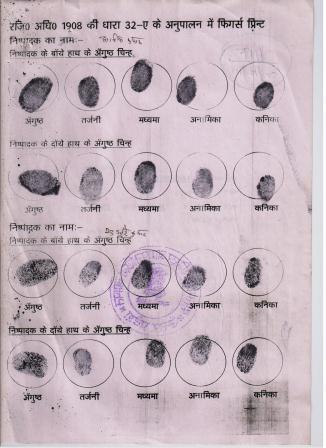 रजि0 अधि0 1908 की धारा 32-ए के अनुपालन में फिगर्स प्रिन्ट
निष्पादक का नाम:-
निष्पादक के बाँये हाथ के अँगुष्ठ चिन्ह
अँगुष्ठ तर्जनी मध्यमा अनामिका कनिका
निष्पादक के दाँये हाथ के अँगुष्ठ चिन्ह
अँगुष्ठ तर्जनी मध्यमा अनामिका कनिका
निष्पादक का नाम:-
निष्पादक के बाँये हाथ के अँगुष्ठ चिन्ह
अँगुष्ठ तर्जनी मध्यमा अनामिका कनिका
निष्पादक के दाँये हाथ के अँगुष्ठ चिन्ह
अँगुष्ठ तर्जनी मध्यमा अनामिका कनिका